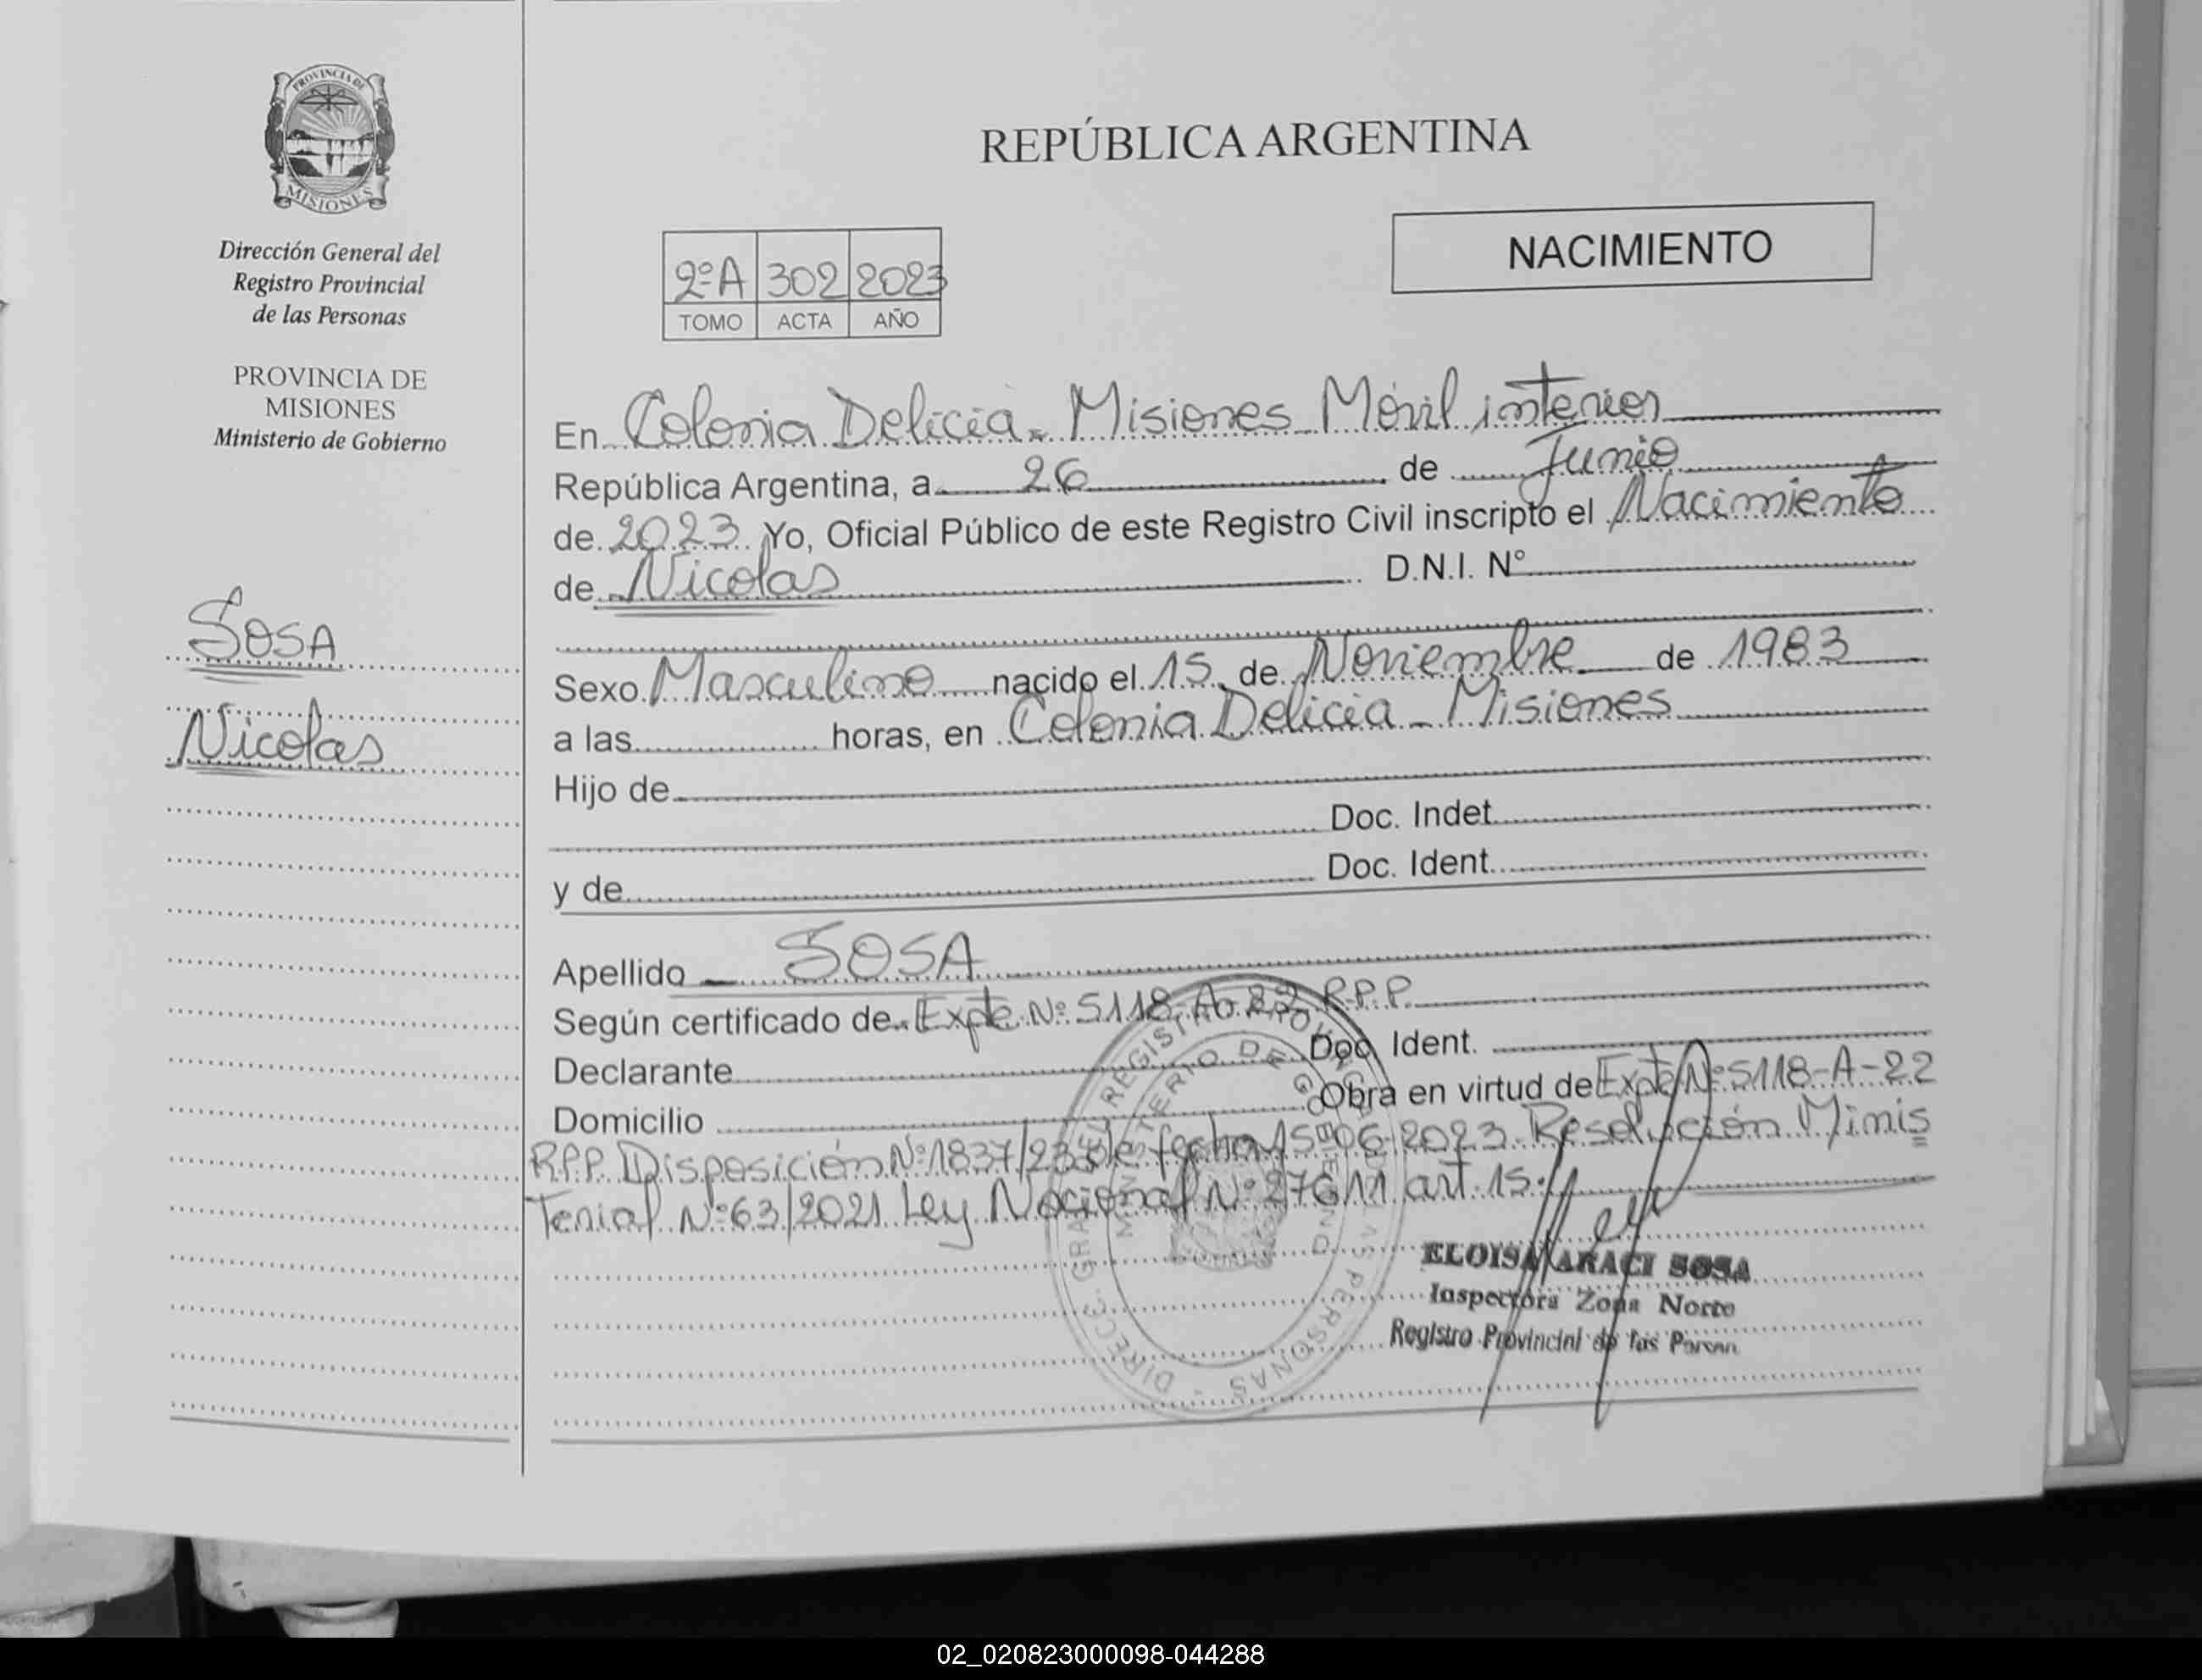 PROVINCIA DE
MISIONES
Dirección General del
Registro Provincial
de las Personas
PROVINCIA DE
MISIONES
Ministerio de Gobierno
SOSA
Nicolas
REPÚBLICA ARGENTINA
NACIMIENTO
2ºA 302 2023
TOMO ACTA AÑO
En Colonia Delicia - Misiones Móvil interior
República Argentina, a 26 de Junio
de 2023 Yo, Oficial Público de este Registro Civil inscripto el Nacimiento
de Nicolas D.N.I. Nº
Sexo Masculino nacido el 15 de Noviembre de 1983
a las horas, en Colonia Delicia - Misiones
Hijo de
Doc. Indet.
y de Doc. Ident.
Apellido SOSA
Según certificado de Expte Nº 5118-A-22 R.P.P.
Declarante Doc. Ident.
Domicilio Obra en virtud de Expte Nº 5118-A-22
R.P.P. Disposición Nº 1837/23 de fecha 15-06-2023 Resolución Minis
terial Nº 63/2021 Ley Nacional Nº 27611 art. 15.
ELOISA ARACI SOSA
Inspectora Zona Norte
Registro Provincial de las Person
02_020823000098-044288